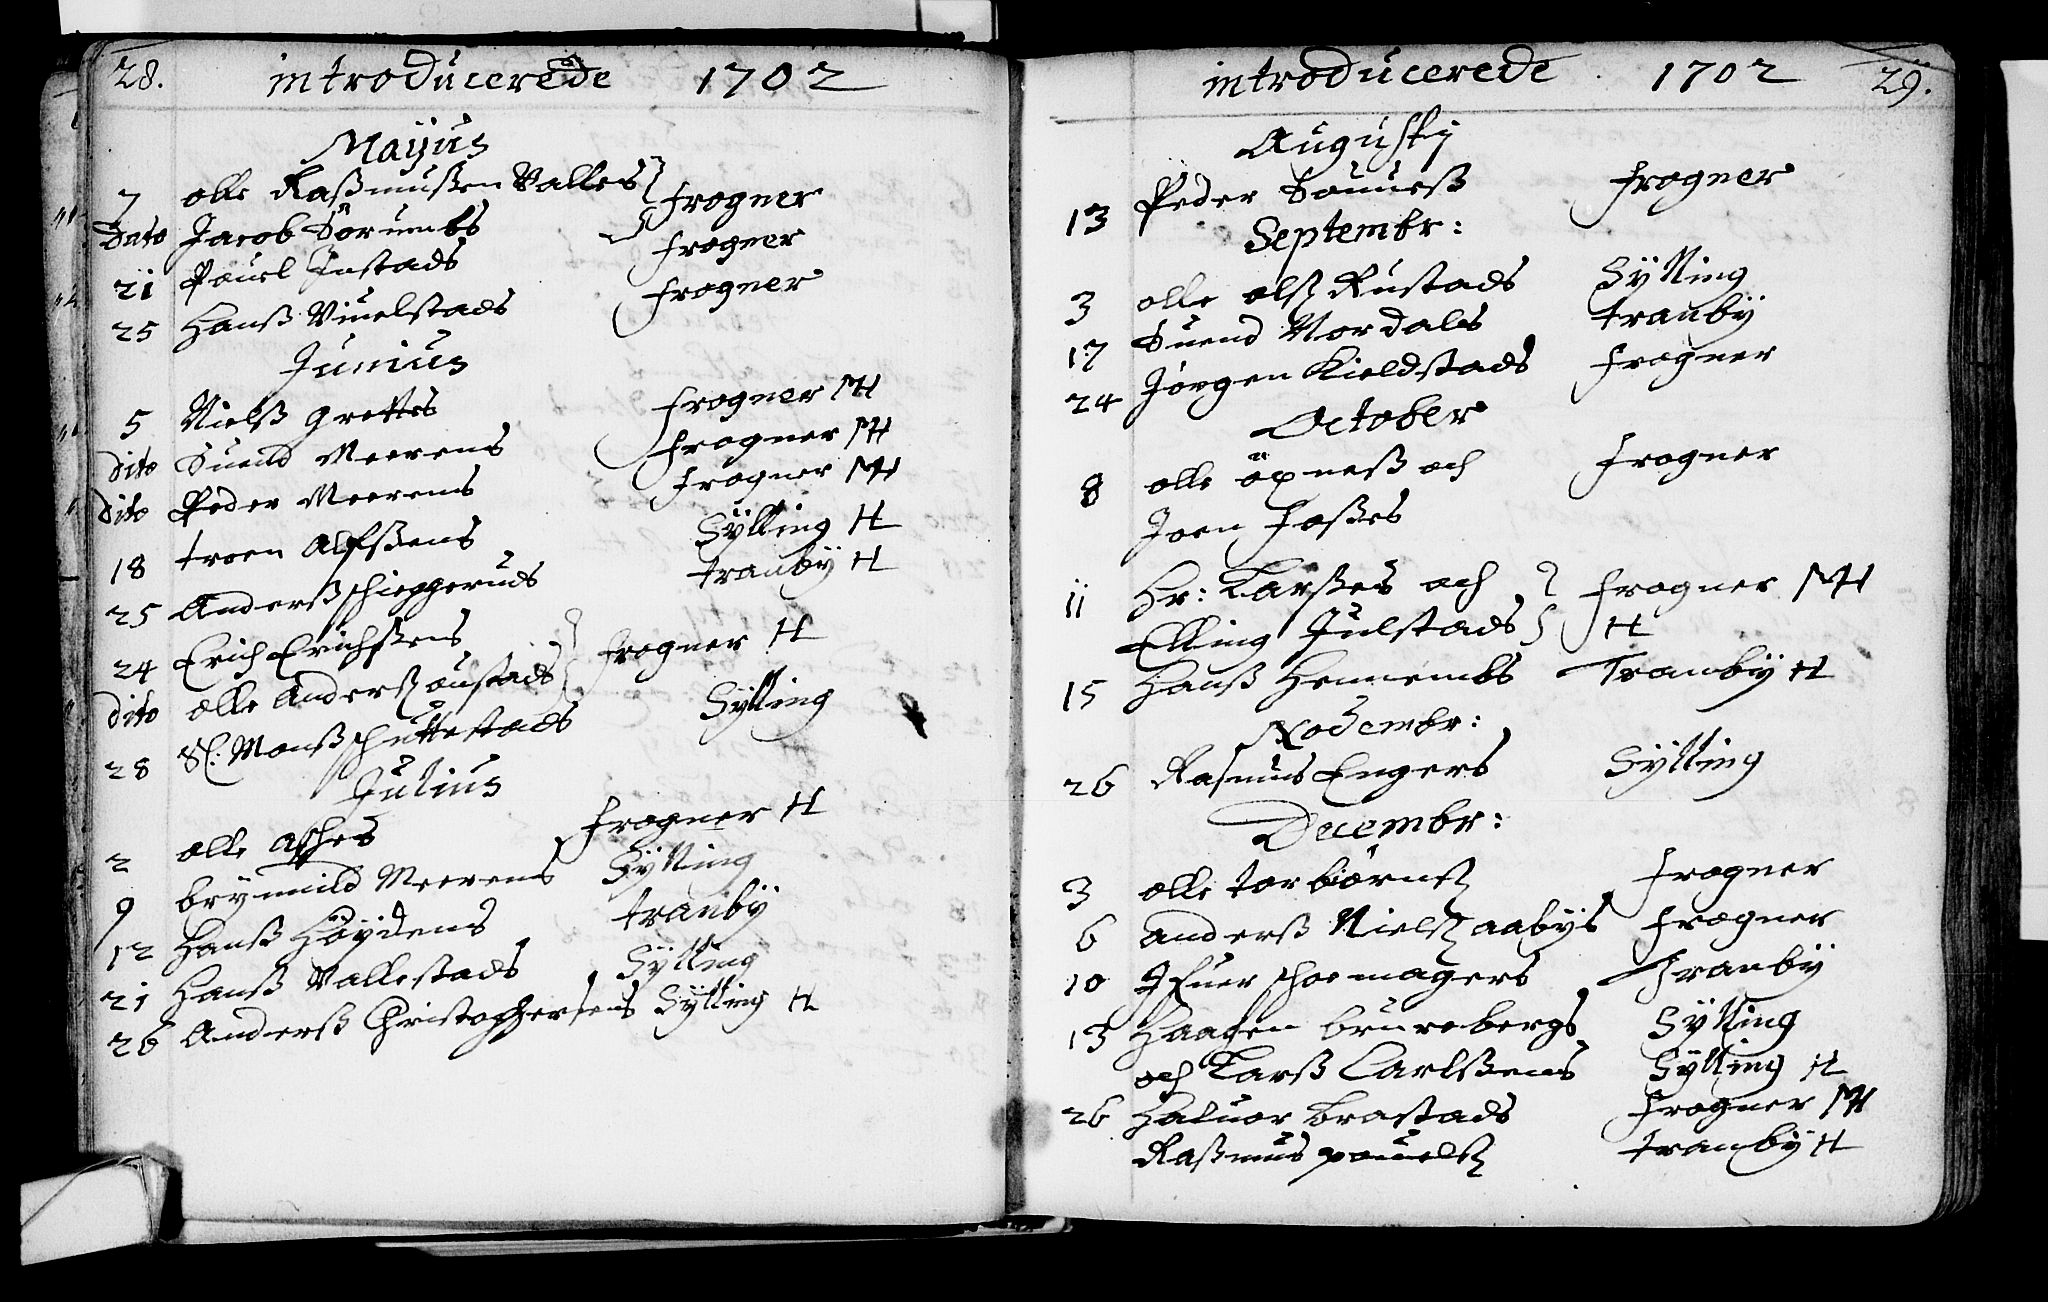 28. introducerede 1702
Maÿus
7 olle Raßmußen Valles frogner
Dato Jacob Sörumbs
21 Pouel Instads frogner
25 Hanß Viuelstads frogner
Junius
5 Nielß Grettes frogner MH
Dito Suend Meerens frogner MH
Dito Peder Meerens frogner MH
18 troen Alfßens Sÿlling H
25 Anderß schieggeruds tranbÿ H
24 Erich Erichßens
Dito olle Anderß frogner H
28 Sl. Monß Sÿlling
Julius
2 olle Asches frogner H
9 brÿnnild Meerens Sÿlling
12 Hanß Höÿdens tranbÿ
21 Hanß Vallestads Sÿlling
26 Anderß Christophersens Sÿlling H
introducerede 1702 29.
Augustÿ
13 Peder frogner
Septembr:
3 olle olß Rustads Sÿlling
17 Suend Nordals tranbÿ
24 Jörgen Kieldstads frogner
October
8 olle öpneß och frogner
Joen Foßes
11 Hr: Larßes och frogner MH
Elling Julstads H
15 Hanß Hennembs Tranbÿ H
Novembr:
26 Rasmus Engers Sÿlling
Decembr:
3 olle torbiörnß frogner
6 anderß Nielß aabÿs frogner
10 Ifuer schoemagers Tranbÿ
13 Haagen brurebergs Sÿlling
och Larß Carlßens Sÿlling H
26 Haluor Brastads frogner MH
Raßmus pouelß tranbÿ H